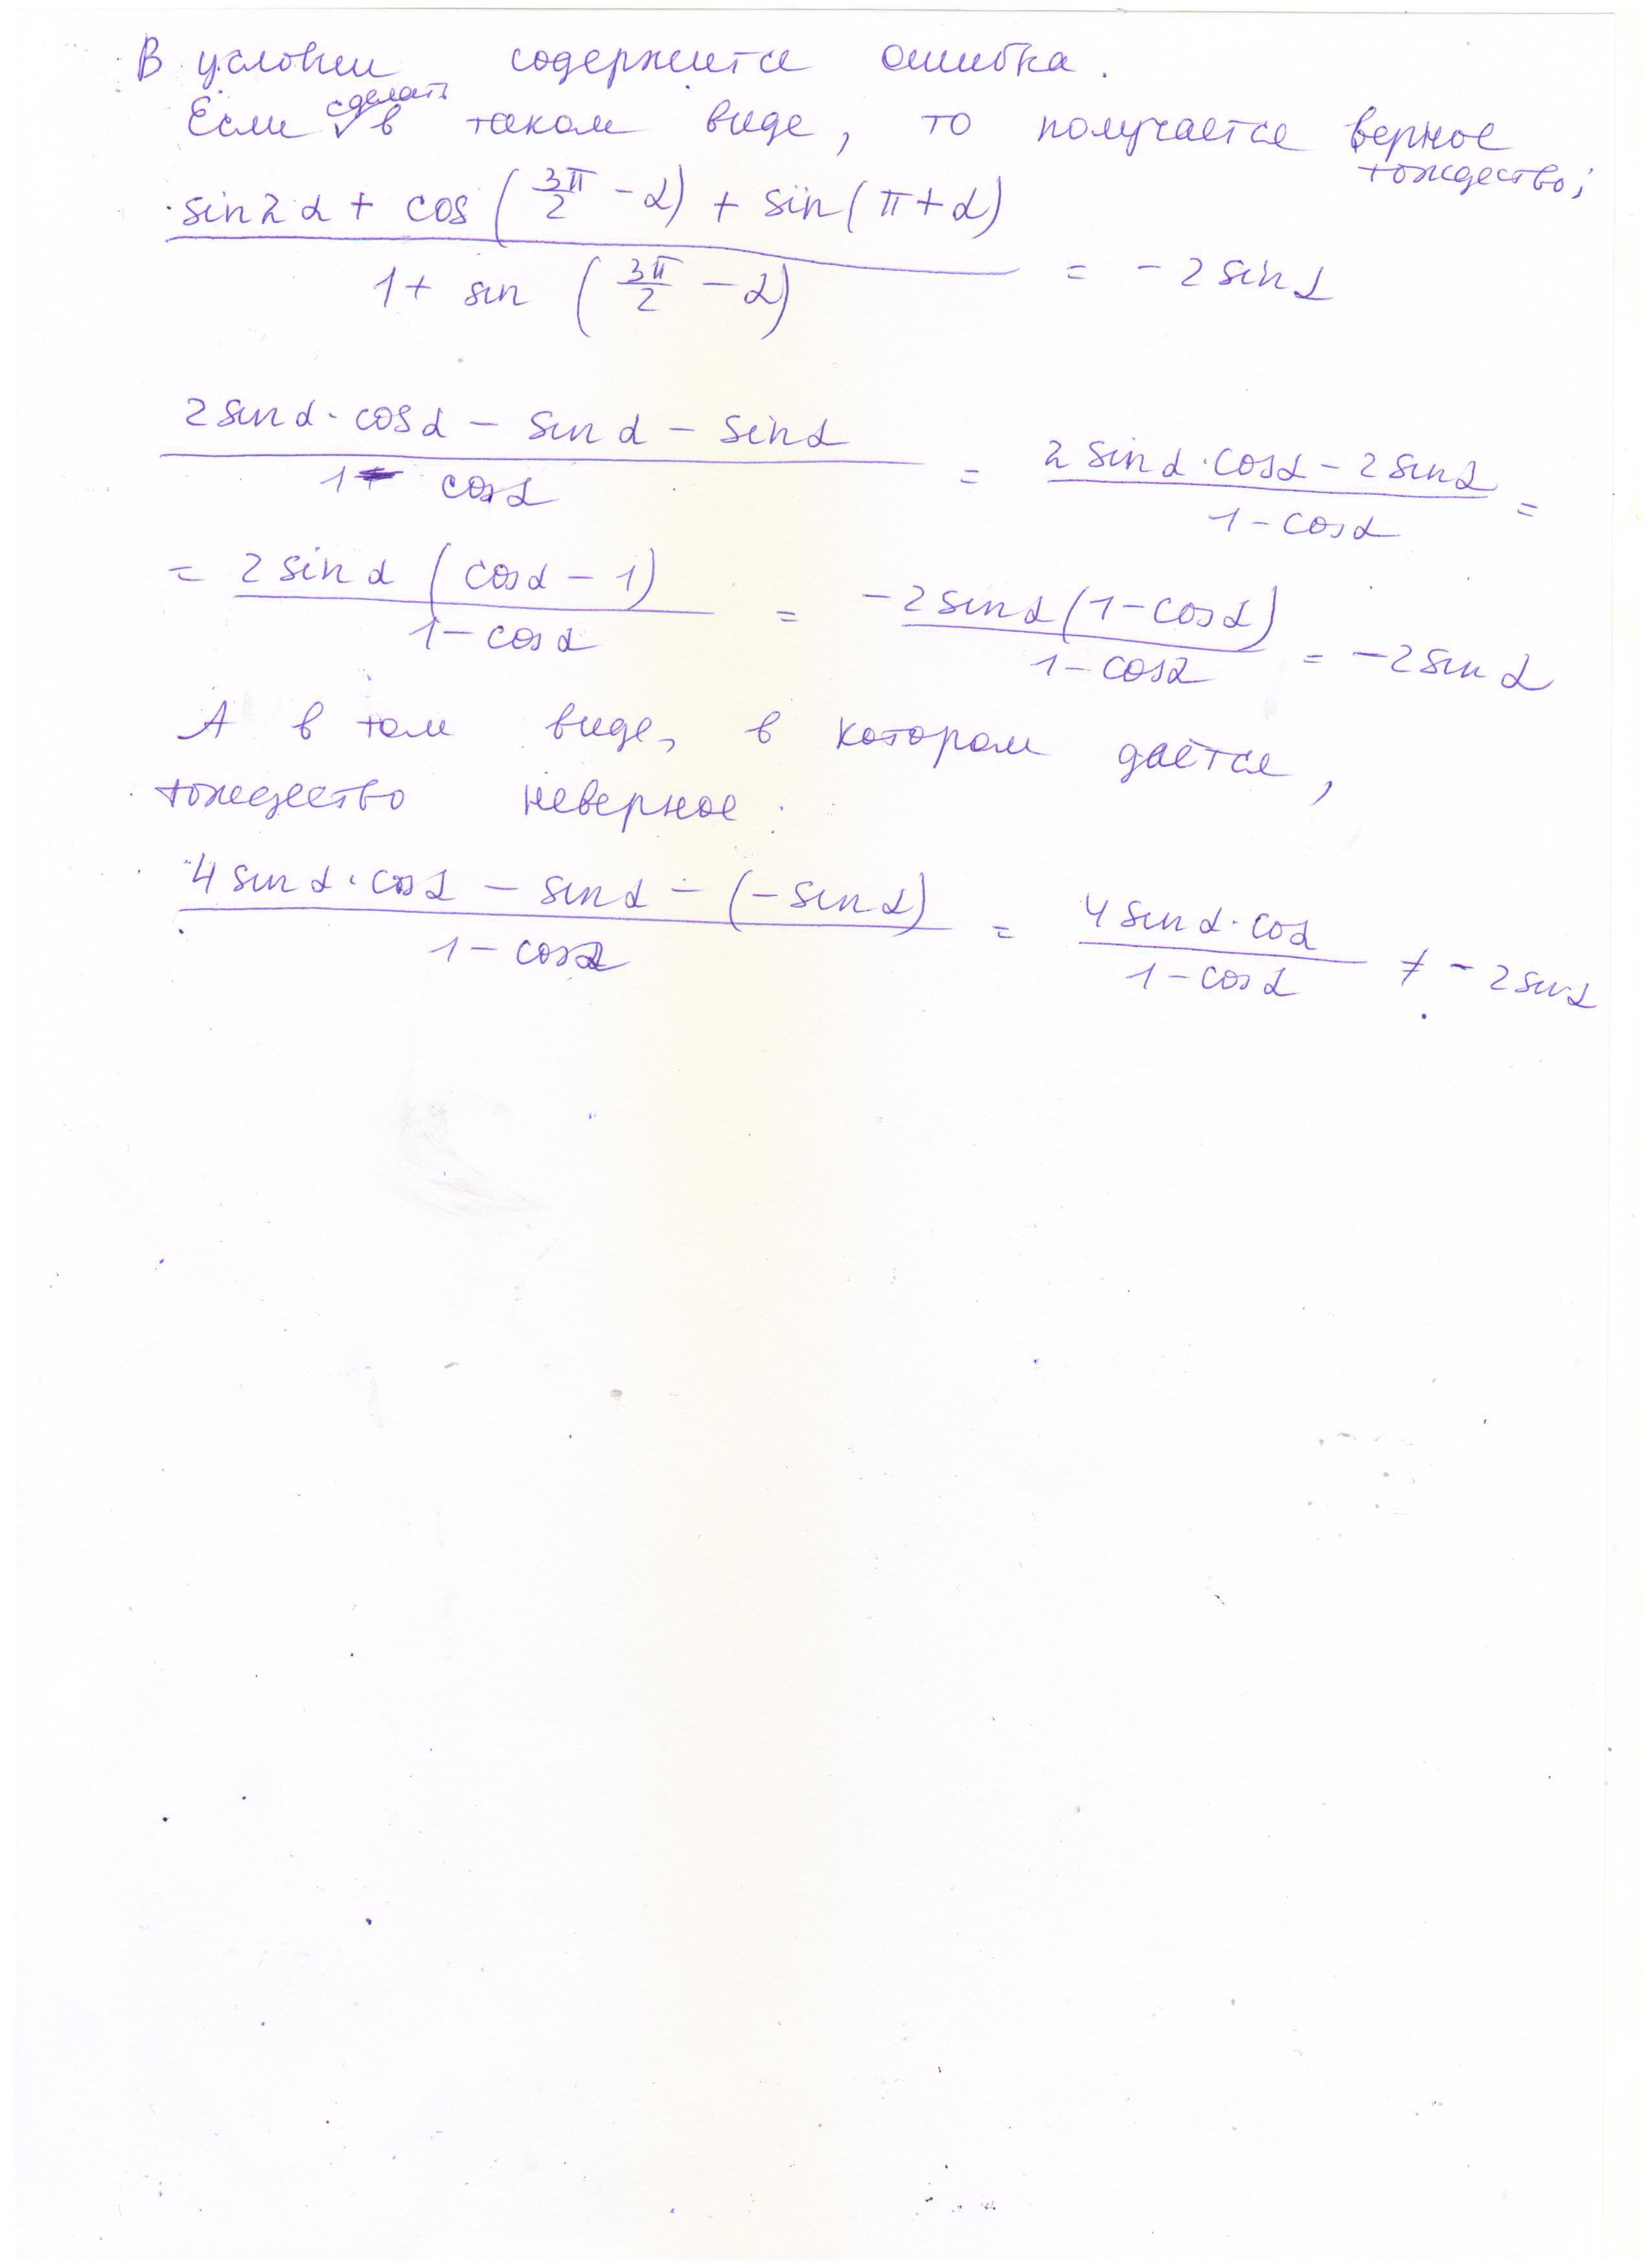 В условии содержится ошибка.
Если сделать в таком виде, то получается верное тождество;
(sin2α + cos(3π/2 - α) + sin(π+α)) / (1 + sin(3π/2 - α)) = -2 sin α
(2 sin α · cos α - sin α - sin α) / (1 - cos α) = (2 sin α · cos α - 2 sin α) / (1 - cos α) =
= (2 sin α (cos α - 1)) / (1 - cos α) = (-2 sin α (1 - cos α)) / (1 - cos α) = -2 sin α
А в том виде, в котором даётся,
тождество неверное:
(4 sin α · cos α - sin α - (-sin α)) / (1 - cos α) = (4 sin α · cos α) / (1 - cos α) ≠ -2 sin α